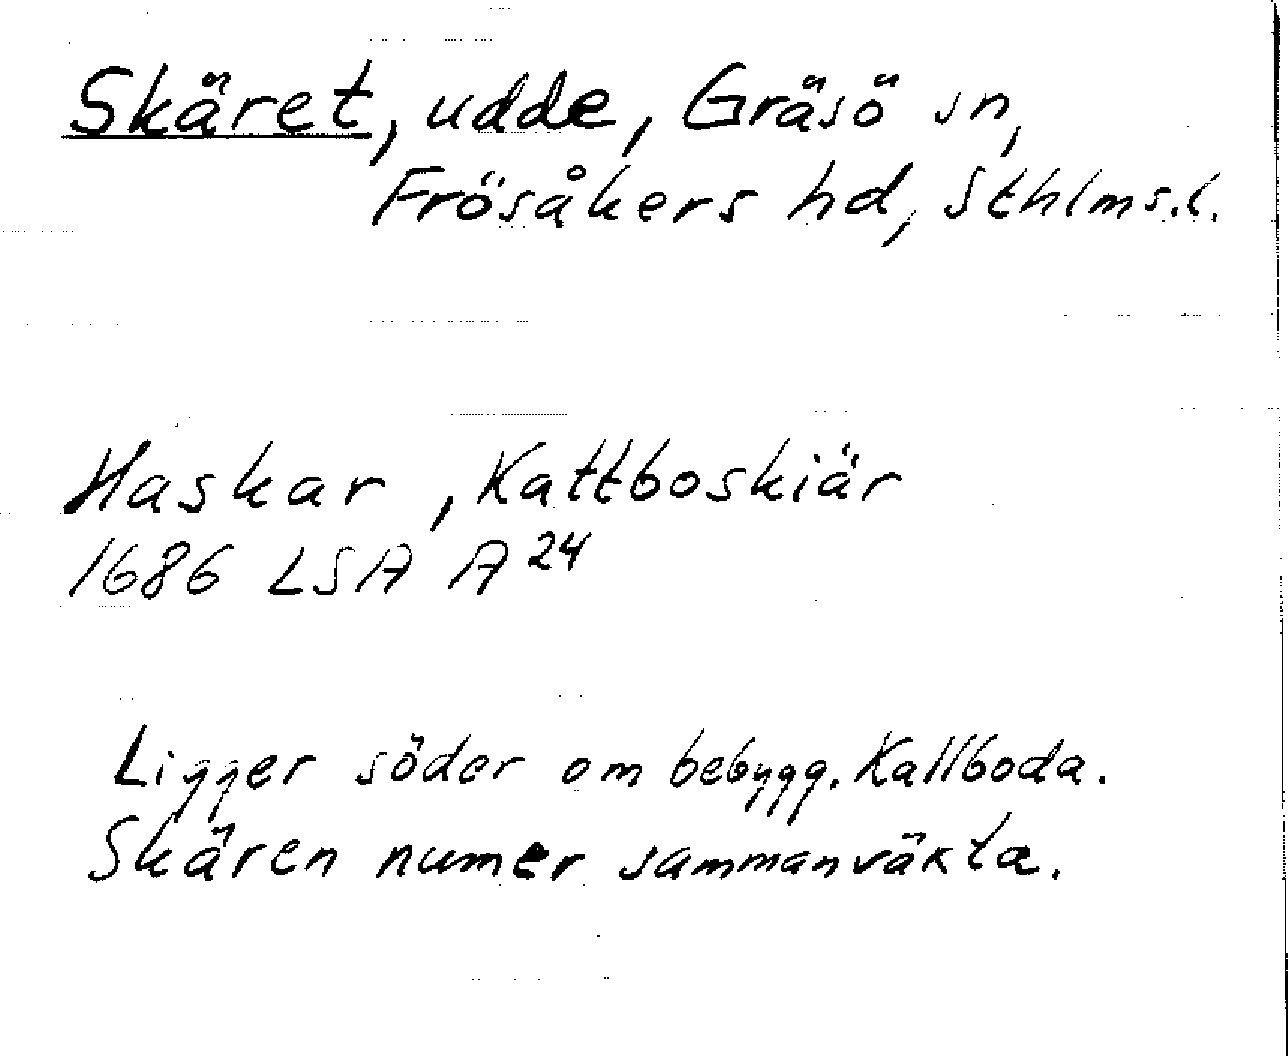 Skäret, udde, Gräsö sn,
Frösåkers hd, Sthlms.l.
Haskar , Kattboskiär
1686 LSA A 24
Ligger söder om bebygg. Kallboda.
Skären numer sammanväxta.